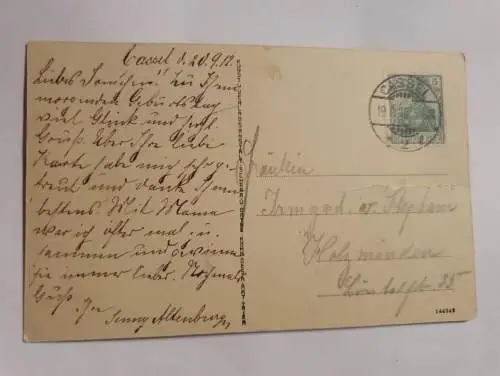 Cassel d. 20.9.12.
Liebes Zu Ihrem
morgenden Geburtstag
viel Glück und herzl.
Grüße. Über Ihre liebe
Karte habe mich sehr ge-
freut und danke Ihnen
bestens. Mit Mama
war ich öfter mal zu
sammen und gewinne
sie immer lieber. Nochmals
Gruß
Ihre
Jenny Altenburg
CASSEL
5
Fräulein
Irmgard v. Stephani
Holzminden
35
144348